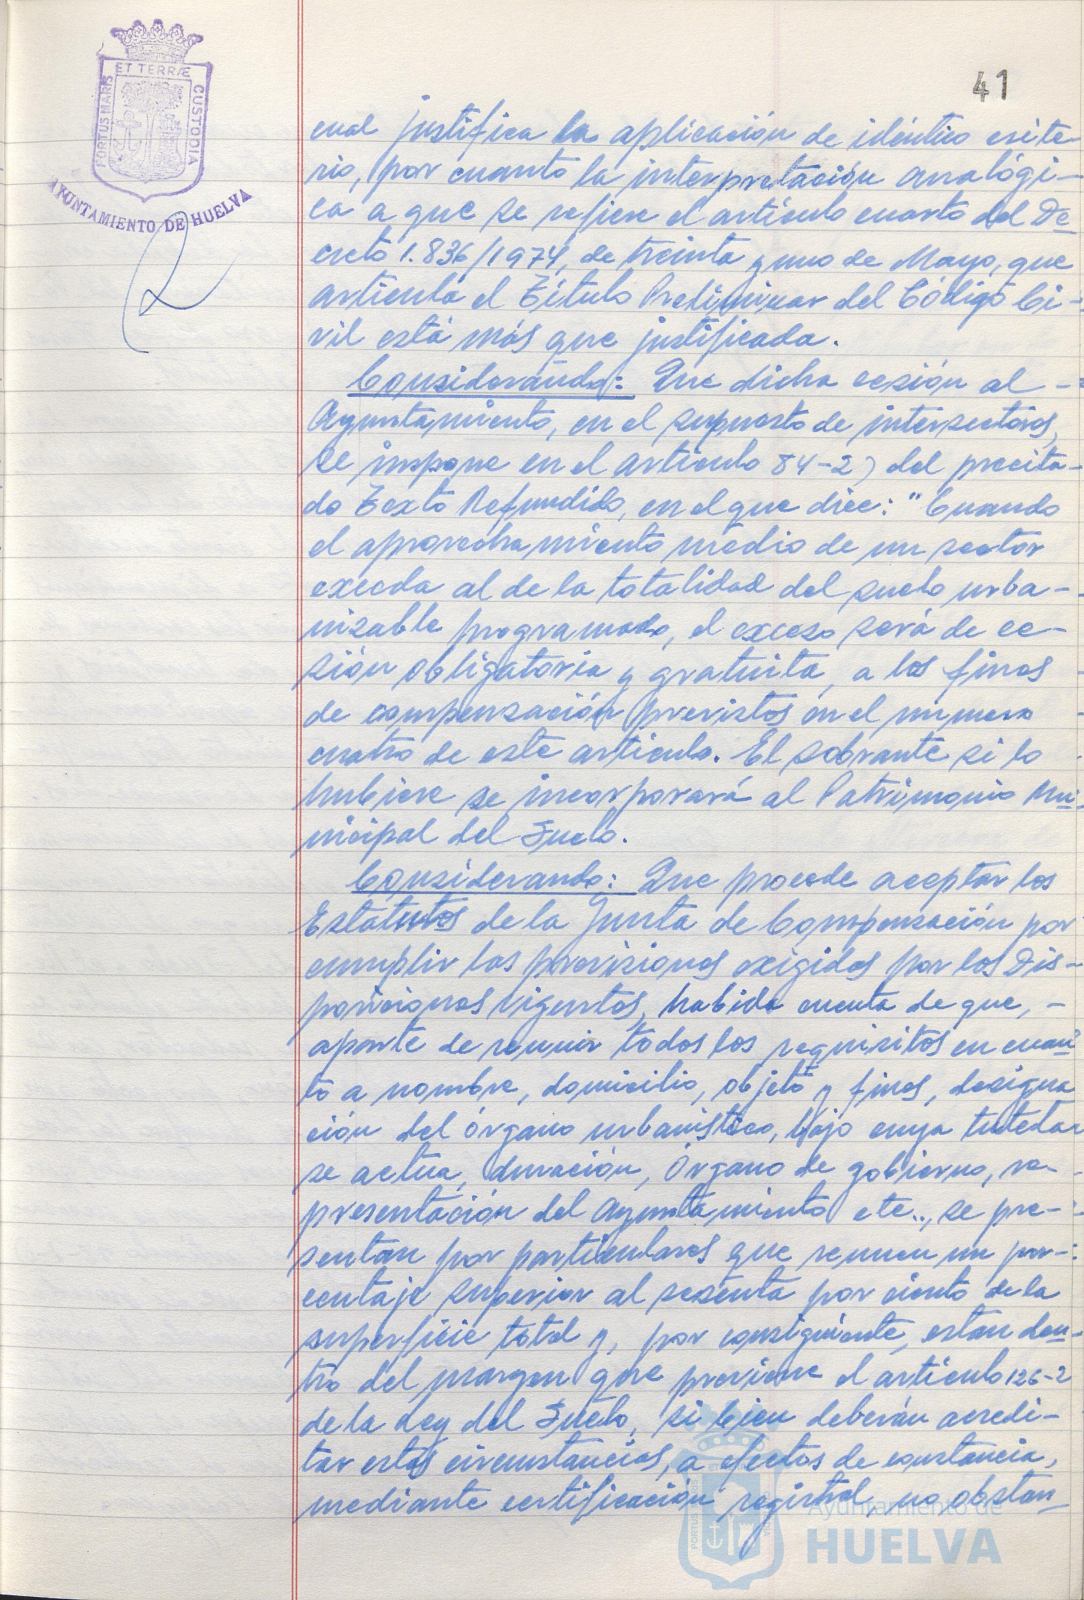 ET TERRÆ
PORTUS MARIS
CUSTODIA
AYUNTAMIENTO DE HUELVA
41
cual justifica la aplicación de idéntico crite-
rio, por cuanto la interpretación analógi-
ca a que se refiere el artículo cuarto del De
creto 1.836/1974, de treinta y uno de Mayo, que
articula el Título Preliminar del Código Ci-
vil está más que justificada.
Considerando: Que dicha cesión al -
Ayuntamiento, en el supuesto de intersectores,
se impone en el artículo 84-2) del precita-
do Texto Refundido, en el que dice: "Cuando
el aprovechamiento medio de un sector
exceda al de la totalidad del suelo urba-
nizable programado, el exceso será de ce-
sión obligatoria y gratuita, a los fines
de compensación previstos en el número
cuatro de este artículo. El sobrante si lo
hubiere se incorporará al Patrimonio Mu
nicipal del Suelo.
Considerando: Que procede aceptar los
Estatutos de la Junta de Compensación por
cumplir las previsiones exigidas por las Dis-
posiciones vigentes, habida cuenta de que, -
aparte de reunir todos los requisitos en cuan
to a nombre, domicilio, objeto y fines, designa
ción del órgano urbanístico, bajo cuya tutela
se actua, duración, Órgano de gobierno, re-
presentación del Ayuntamiento etc.., se pre-
sentan por particulares que reunen un por-
centaje superior al sesenta por ciento de la
superficie total y, por consiguiente, estan den-
tro del margen que previene el artículo 126-2
de la Ley del Suelo, si bien deberán acredi-
tar estas circunstancias, a efectos de constancia,
mediante certificación registral, no obstan
Ayuntamiento de
HUELVA